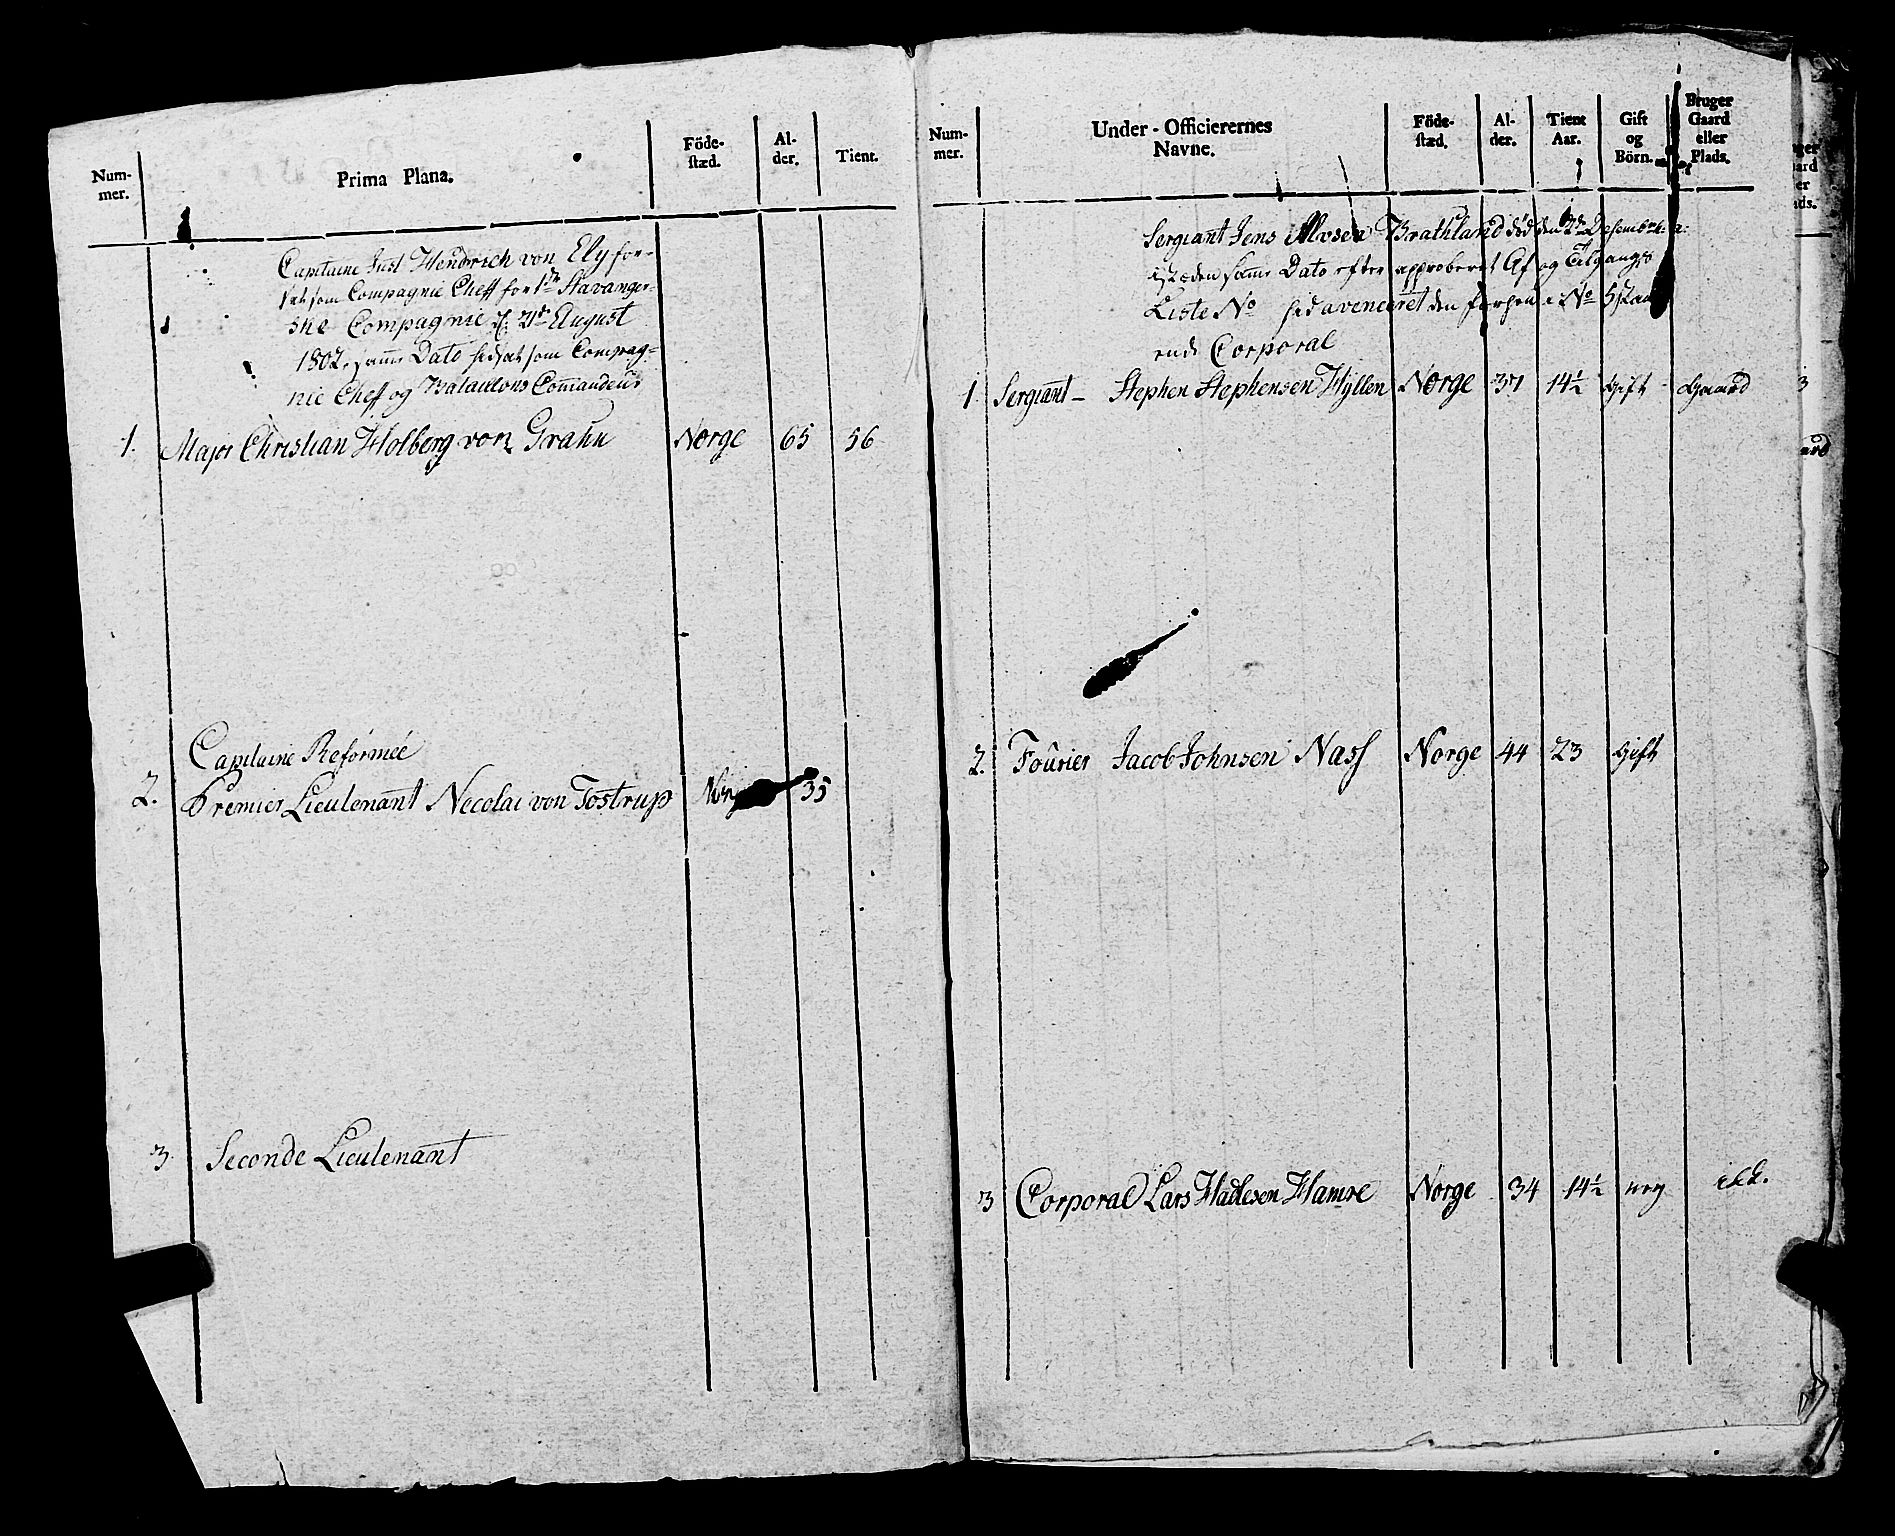 Num-
mer.
Prima Plana.
Föde-
stæd.
Al-
der.
Tient.
Capitaine Just Hendrich von Ely for-
sat som Compagnie Cheff for 1ste Stavanger-
ske Compagnie d: August
1802, samme Dato hidsat som Compag-
nie Chef og Batallions Commandeur
1. Major Christian Holberg von Grahn Norge 65 56
Capitaine Reformée
2. Premier Lieutenant Necolai von Tostrup Norge 35
3. Seconde Lieutenant
Num-
mer.
Under-Officierernes
Navne.
Föde-
stæd.
Al-
der.
Tient
Aar.
Gift
og
Börn.
Bruger
Gaard
eller
Plads.
Sergiant Jens Brathland död den Desember
isteden samme Dato efter approberet Af og Tilgangs
Liste No hid avenceret den forhen i No 5 staa
ende Corporal
1. Sergiant - Stephen Stephensen Hyllen Norge 37 14½ Gift - Gaard
2. Fourier Jacob Johnsen Nass Norge 44 23 Gift
3 Corporal Lars Hadlesen Hamre Norge 34 14½ ney ikk.